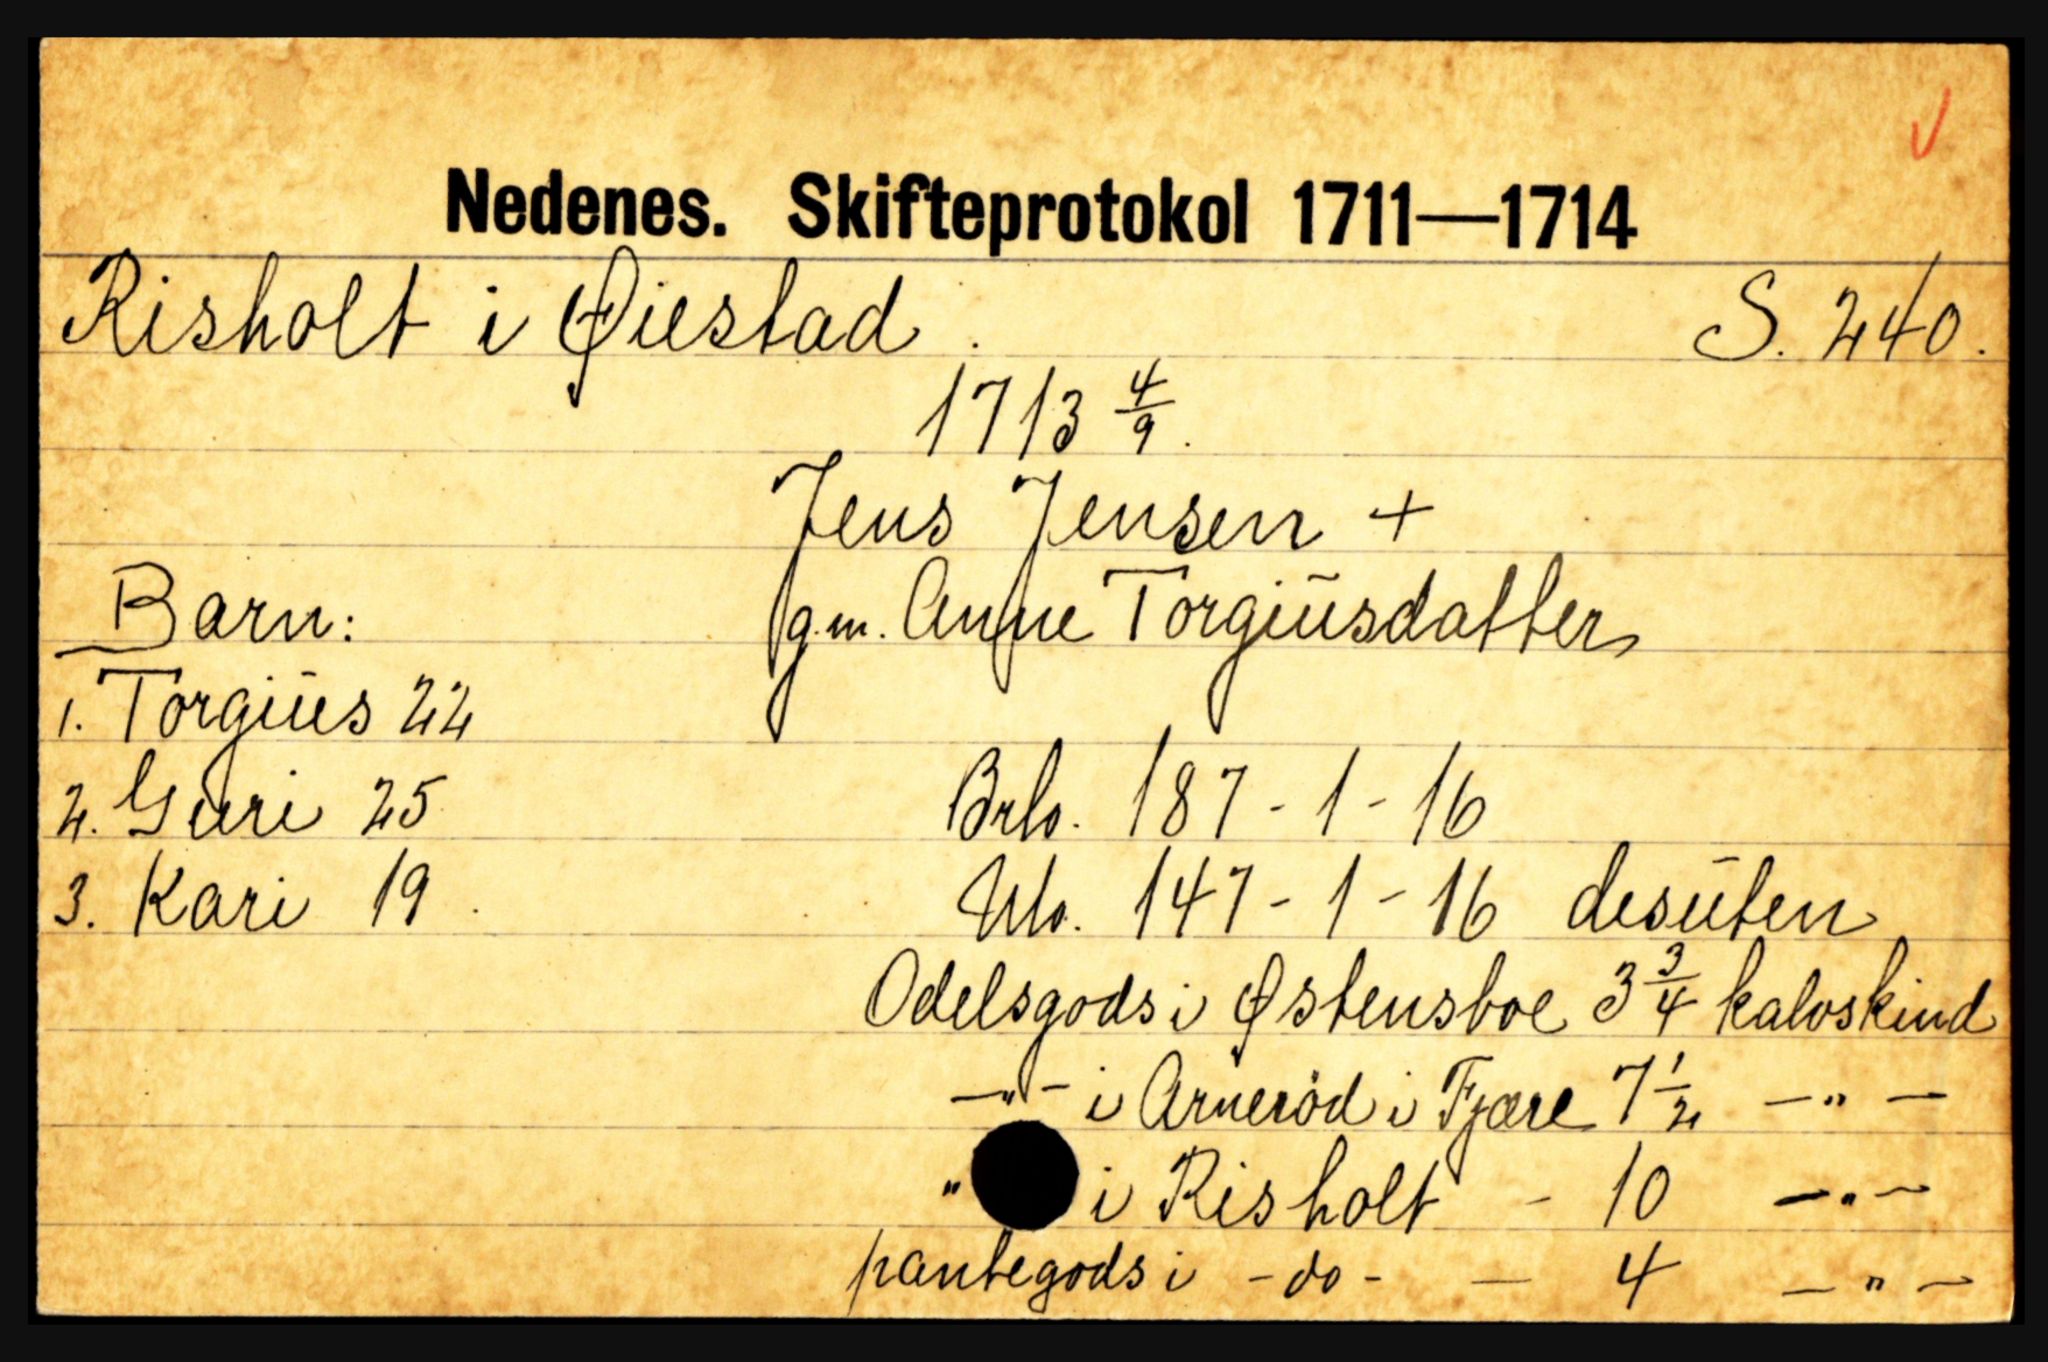 Nedenes. Skifteprotokol 1711—1714
Risholt i Øiestad. S. 240.
1713 4/9.
Jens Jensen +
g.m. Anne Torgiŭsdatter
Barn:
1. Torgiŭs 22
2. Guri 25
3. Kari 19.
Brlo. 187 - 1 - 16
Nlo. 147 - 1 - 16 desŭten
Odelsgods i Østensboe 3 3/4 kalvskind
—"— i Arneröd i Fjære 7 1/2 —"—
" i Risholt - 10 —"—
pantegods i - do - — 4 —"—